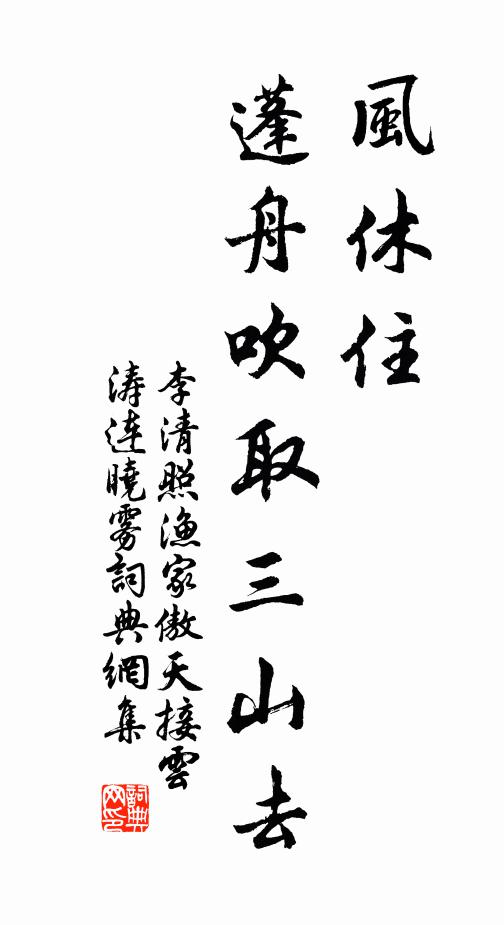 風休住
蓬舟吹取三山去
李清照漁家傲天接雲
涛連曉雾詞典網集
詞典
网